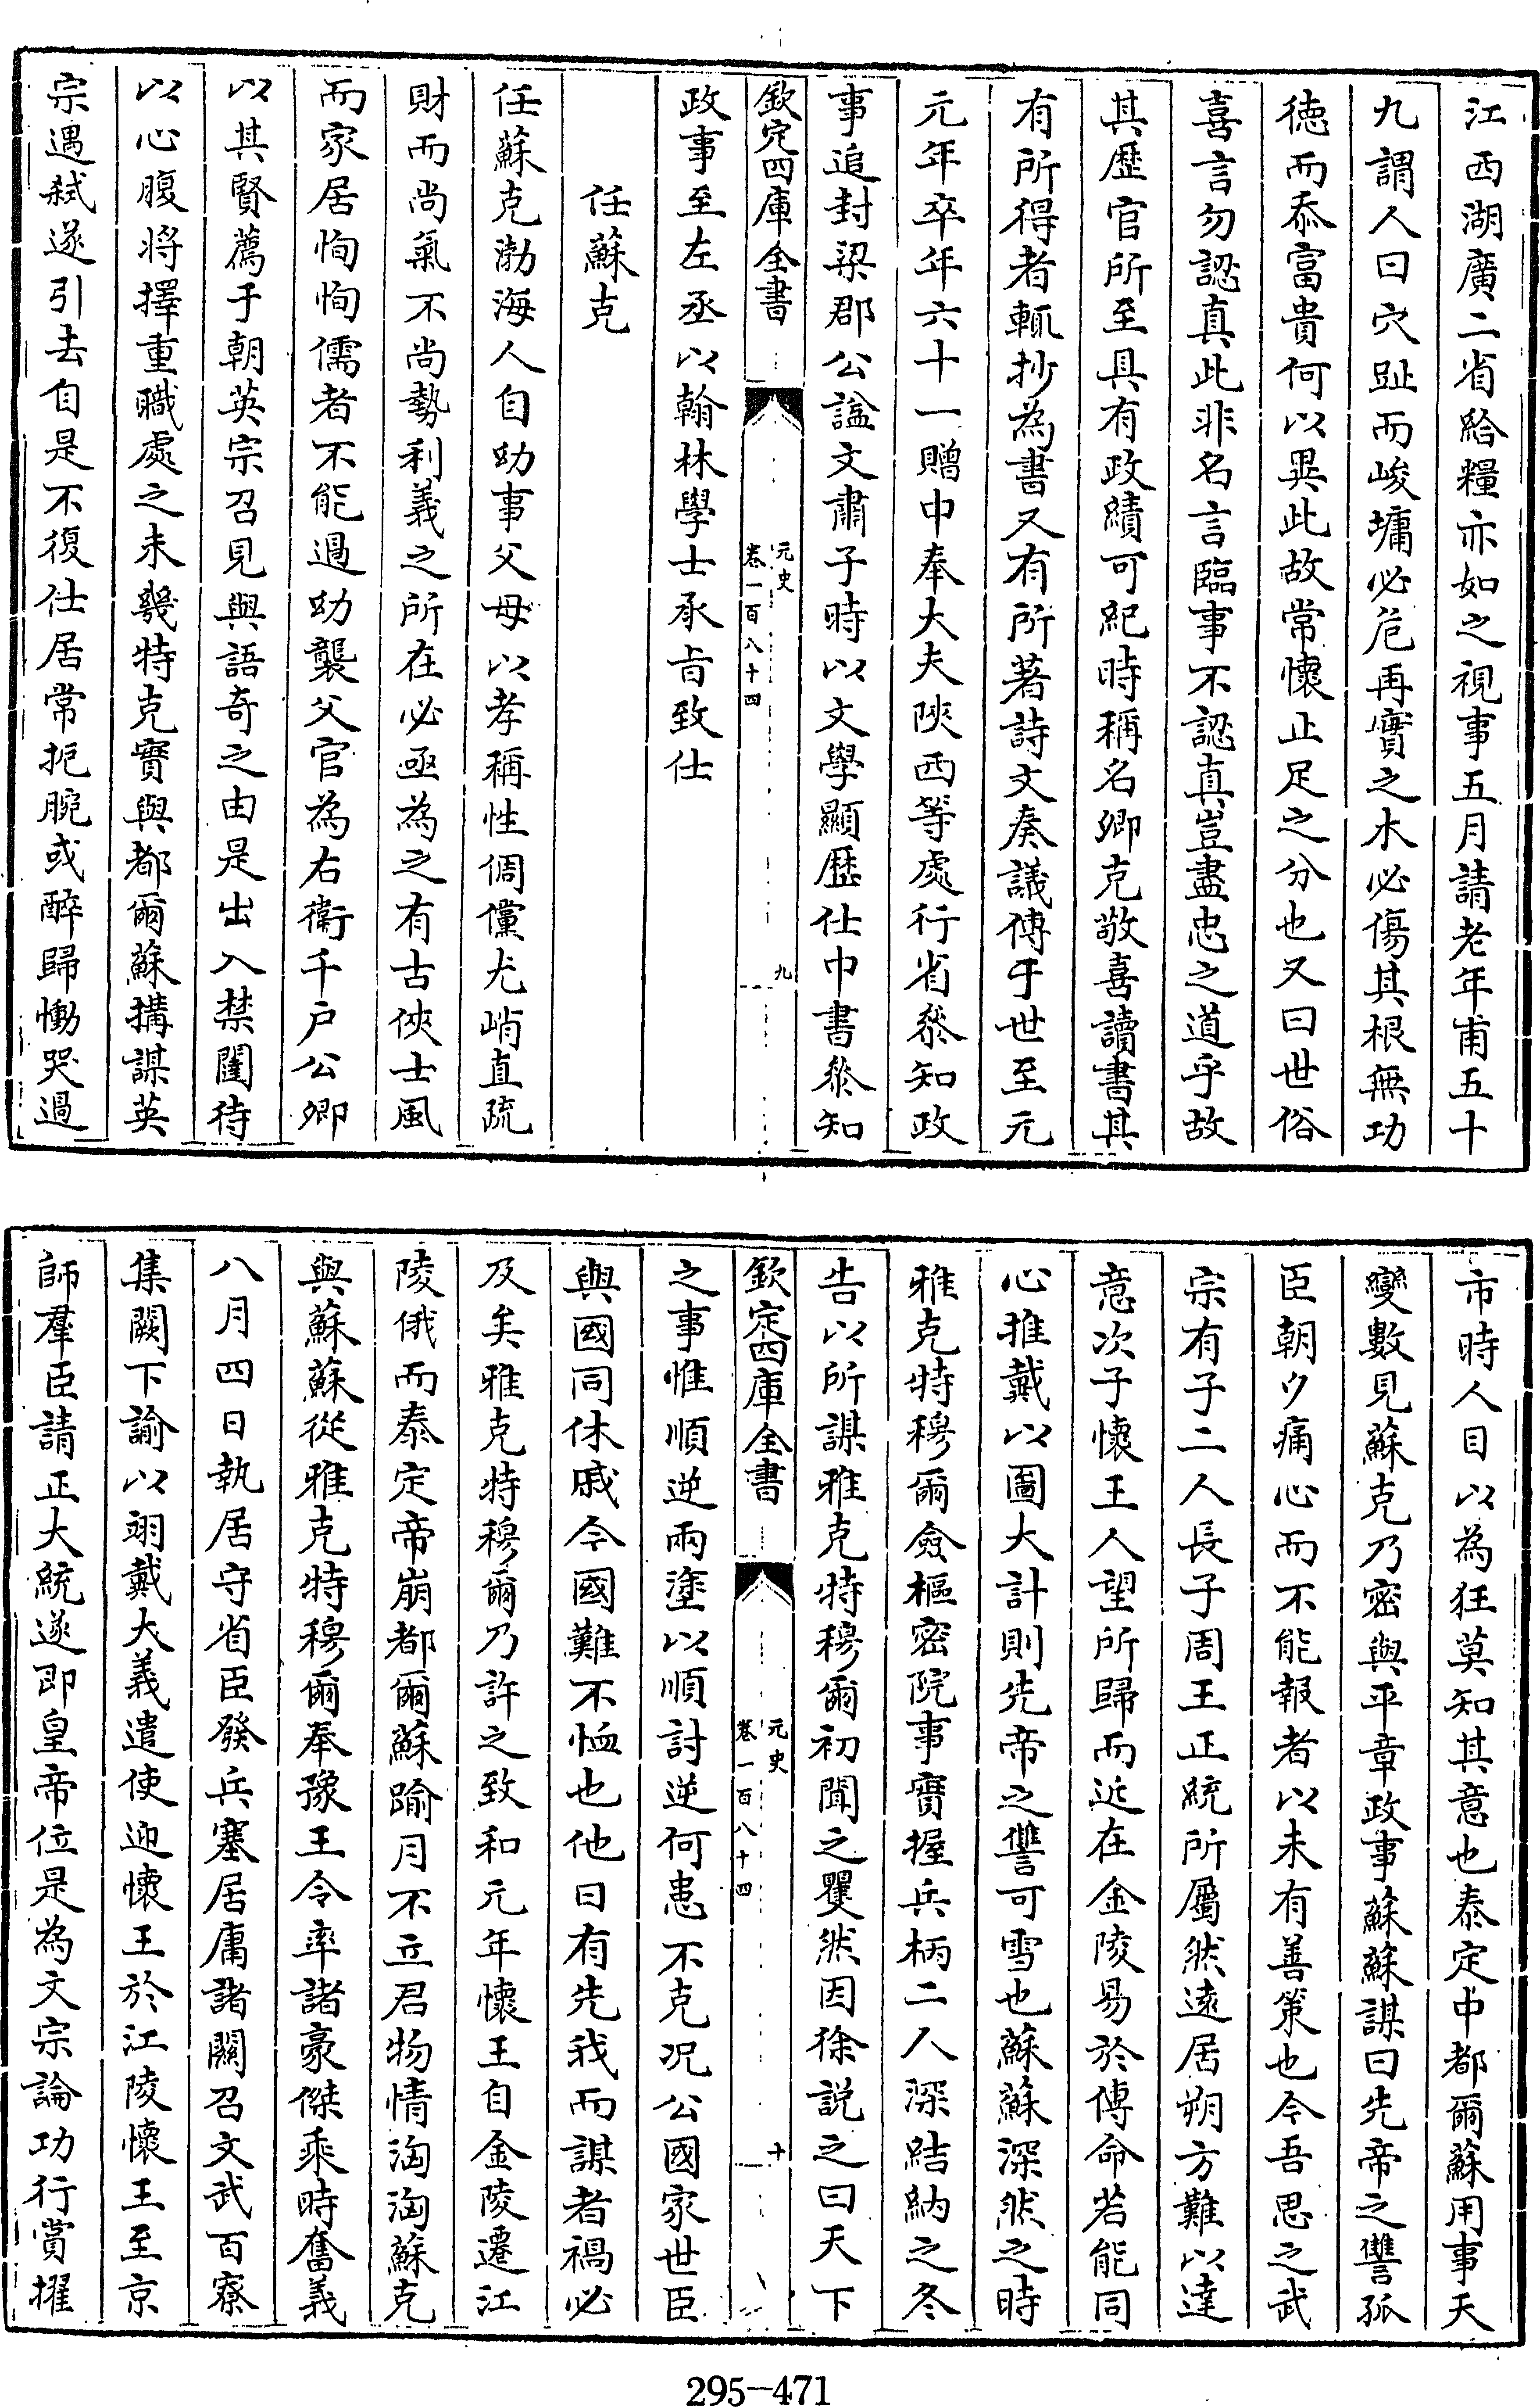 江西湖廣二省給糧亦如之視事五月請老年甫五十
九謂人曰穴趾而峻墉必危再實之木必傷其根無功
徳而忝富貴何以異此故常懷止足之分也又曰世俗
喜言勿認真此非名言臨事不認真豈盡忠之道乎故
其歴官所至具有政績可紀時稱名卿克敬喜讀書其
有所得者輒抄為書又有所著詩文奏議傳于世至元
元年卒年六十一贈中奉大夫陜西等處行省叅知政
事追封梁郡公諡文肅子時以文學顯歴仕中書叅知
欽定四庫全書
元史
卷一百八十四
九
政事至左丞以翰林學士承㫖致仕
任蘇克
任蘇克渤海人自幼事父母以孝稱性倜儻尤峭直疏
財而尚氣不尚勢利義之所在必亟為之有古俠士風
而家居恂恂儒者不能過幼襲父官為右衛千户公卿
以其賢薦于朝英宗召見與語奇之由是出入禁闥待
以心腹将擇重職處之未幾特克實與都爾蘇搆謀英
宗遇弑遂引去自是不復仕居常扼腕或醉歸慟哭過
市時人目以為狂莫知其意也泰定中都爾蘇用事天
變數見蘇克乃密與平章政事蘇蘇謀曰先帝之讐孤
臣朝夕痛心而不能報者以未有善策也今吾思之武
宗有子二人長子周王正統所屬然逺居朔方難以達
意次子懷王人望所歸而近在金陵易於傳命若能同
心推戴以圖大計則先帝之讐可雪也蘇蘇深然之時
雅克特穆爾僉樞密院事實握兵柄二人深結納之冬
告以所謀雅克特穆爾初聞之矍然因徐説之曰天下
欽定四庫全書
元史
卷一百八十四
十
之事惟順逆兩塗以順討逆何患不克况公國家世臣
與國同休戚今國難不恤也他日有先我而謀者禍必
及矣雅克特穆爾乃許之致和元年懷王自金陵遷江
陵俄而泰定帝崩都爾蘇踰月不立君物情洶洶蘇克
與蘇蘇從雅克特穆爾奉豫王令率諸豪傑乘時奮義
八月四日執居守省臣發兵塞居庸諸關召文武百寮
集闕下諭以翊戴大義遣使迎懷王於江陵懷王至京
師羣臣請正大統遂即皇帝位是為文宗論功行賞擢
295-471